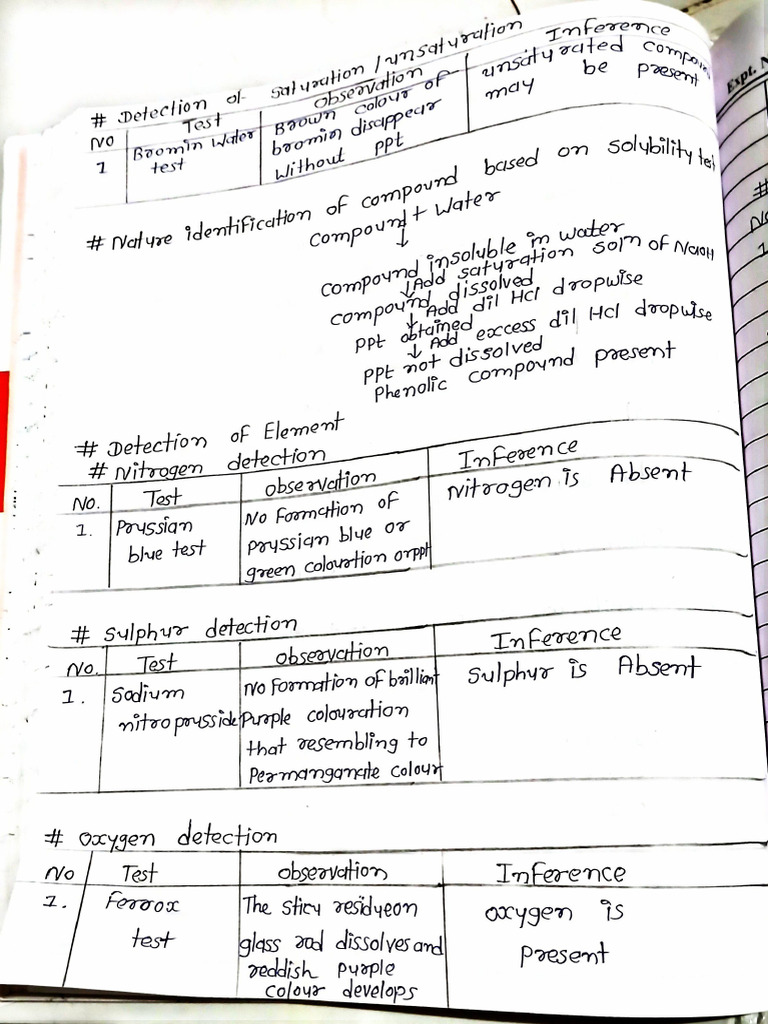 # Detection of saturation / unsaturation
No Test Observation Inference
1 Bromin Water test Brown colour of bromin disappear Without ppt unsaturated compoun may be present
# Nature identification of compound based on solubility test
Compound + Water
↓
compound insoluble in water
↓ Add saturation soln of NaOH
compound dissolved
↓ Add dil Hcl dropwise
ppt obtained
↓ Add excess dil Hcl dropwise
ppt not dissolved
phenolic compound present
# Detection of Element
# Nitrogen detection
No. Test observation Inference
1. Prussian blue test No Formation of prussian blue or green colouration orppt Nitrogen is Absent
# Sulphur detection
No. Test observation Inference
1. Sodium nitroprusside No Formation of brilliant Purple colouration that resembling to Permanganate colour Sulphur is Absent
# Oxygen detection
No Test observation Inference
1. Ferrox test The sticy residyeon glass rod dissolves and reddish purple colour develops oxygen is present
Expt. N
#
No
1